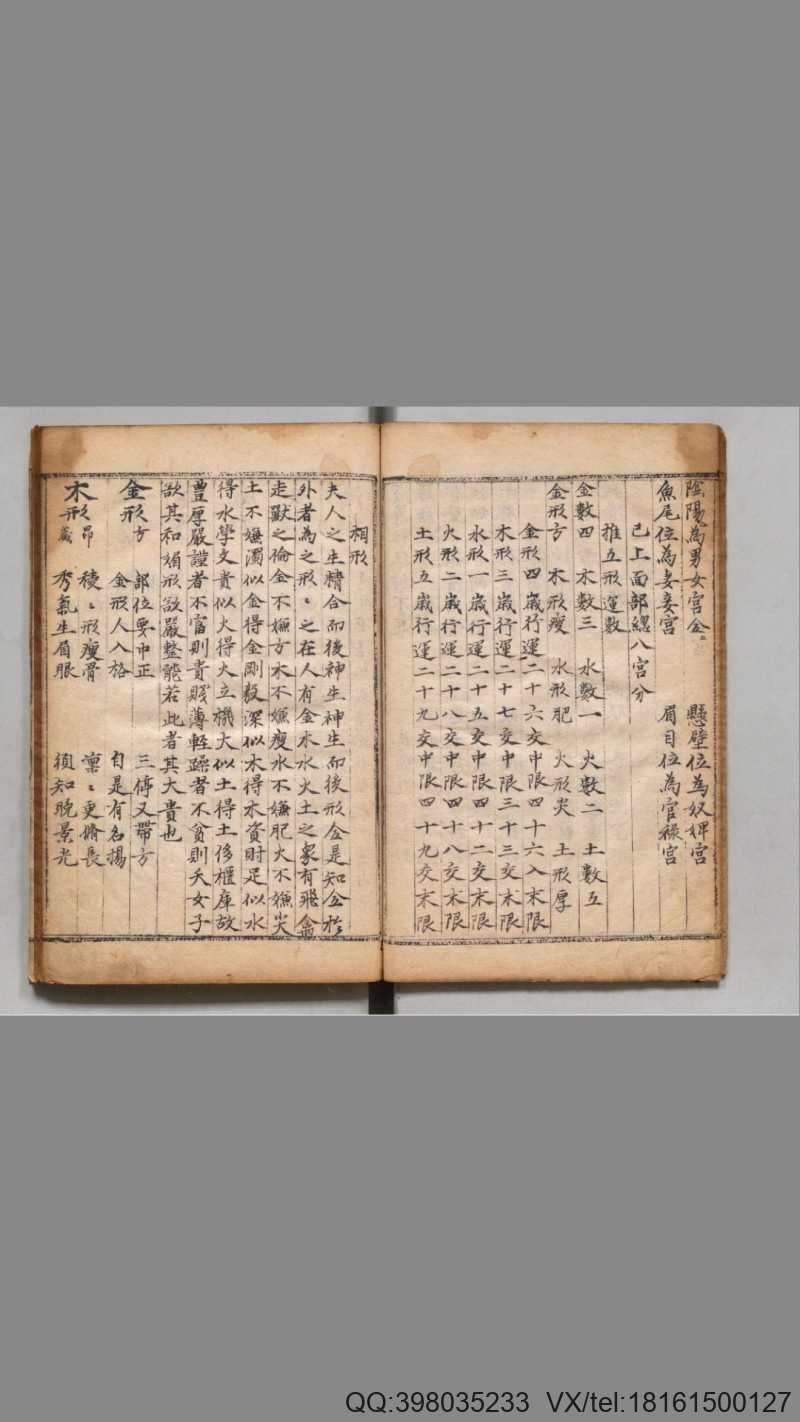 陰陽為男女宮 懸壁位為奴婢宮
魚尾位為妻妾宮 眉目位為官祿宮
已上面部總八宮分
推五形運數
金數四 木數三 水數一 火數二 土數五
金形方 木形瘦 水形肥 火形尖 土形厚
金形四歲行運二十六交中限四十六入末限
木形三歲行運二十七交中限三十三交末限
水形一歲行運二十五交中限四十二交末限
火形二歲行運二十八交中限四十八交末限
土形五歲行運二十九交中限四十九交末限
相形
夫人之生精合而後神生神生而後形全是知全於
外者為之形〻之在人有金木水火土之象有飛禽
走獸之倫金不嫌方木不嫌瘦水不嫌肥火不嫌尖
土不嫌濁似金得金剛毅深似木得木資財足似水
得水學文貴似火得火立機大似土得土侈櫃庫故
豊厚嚴謹者不富則貴賤薄輕躁者不貧則夭女子
欲其和媚形欲嚴整能若此者其大貴也
金形方 部位要中正 三停又帶方
金形人入格 自是有名揚
木形昂藏 稜〻形瘦骨 凜〻更脩長
秀氣生眉眼 須知晚景光
QQ:398035233 VX/tel:18161500127